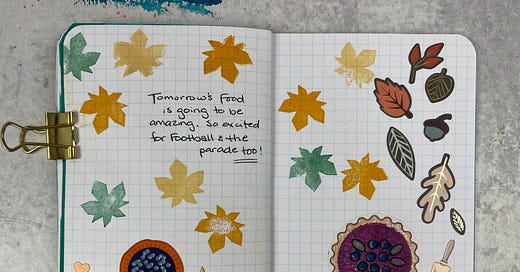 Tomorrow's Food
is going to be
amazing. So excited
for Football & the
parade too!